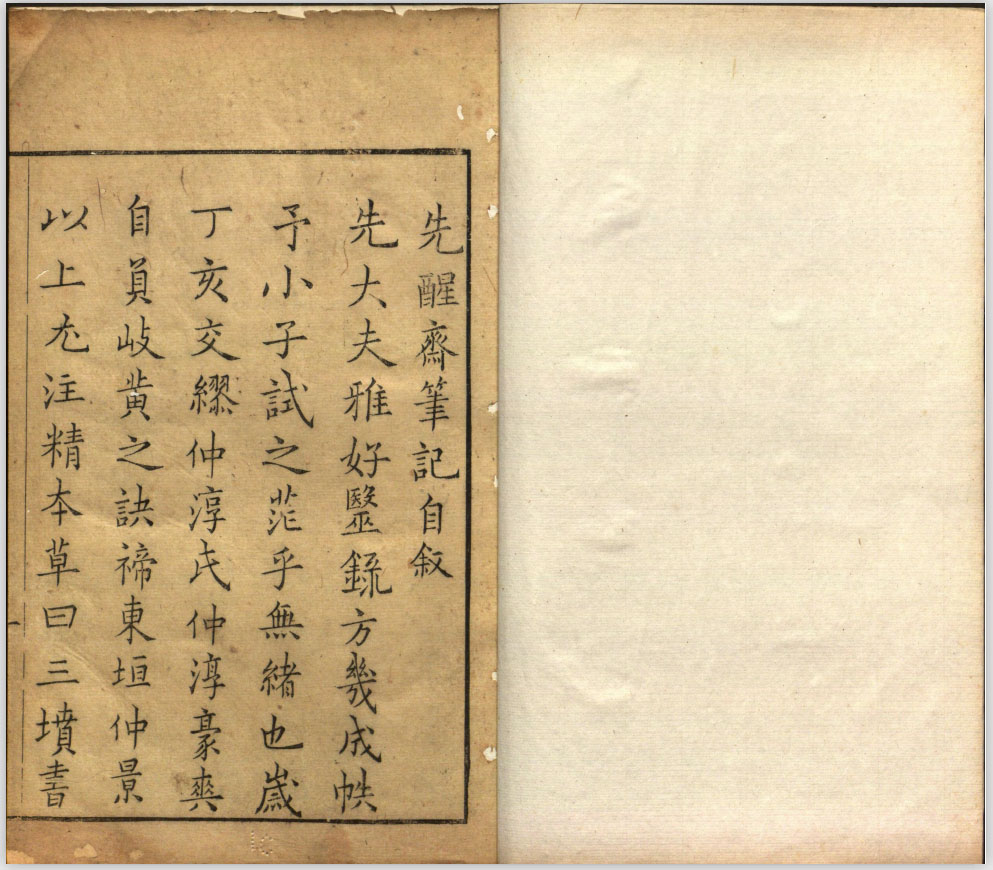 先醒齋筆記自叙
先大夫雅好毉録方幾成帙
予小子試之茫乎無緒也嵗
丁亥交繆仲淳氏仲淳豪爽
自負岐黄之訣褅東垣仲景
以上尤注精本草曰三墳書